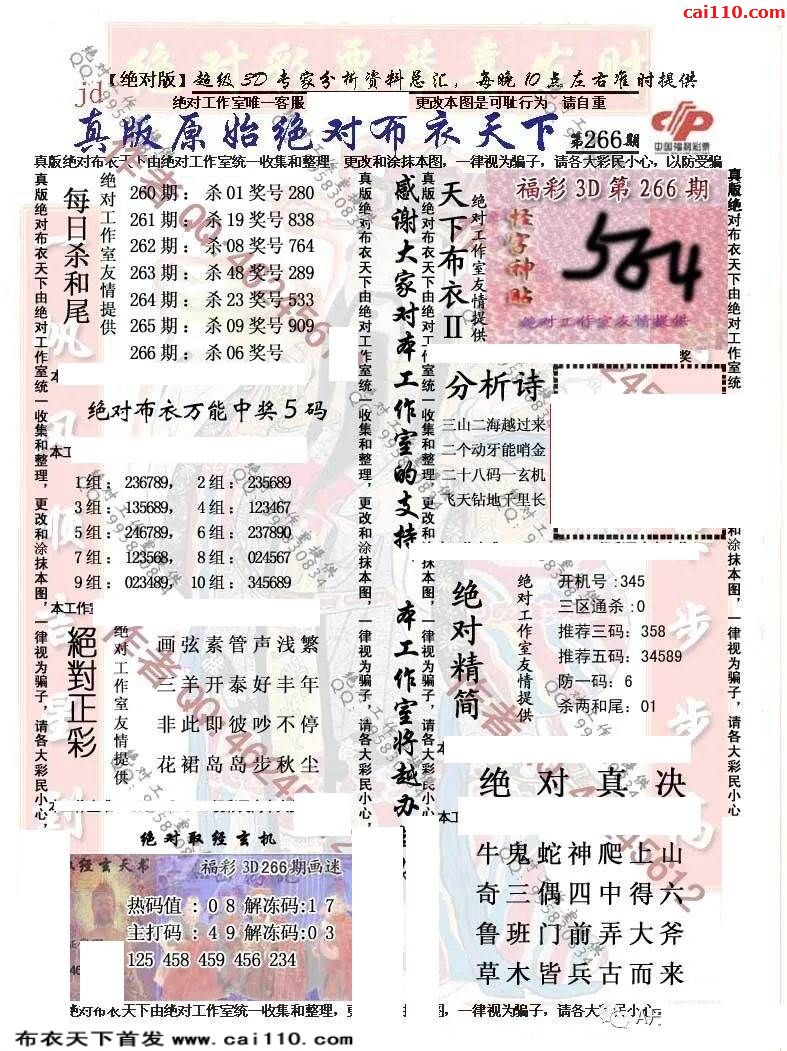 cai110.com
【绝对版】超级3D专家分析资料总汇,每晚10点左右准时提供
jd
绝对工作室唯一客服 更改本图是可耻行为 请自重
真版原始绝对布衣天下 第266期
中国福利彩票
真版绝对布衣天下由绝对工作室统一收集和整理,更改和涂抹本图,一律视为骗子,请各大彩民小心,以防受骗
每日杀和尾
绝对工作室友情提供
260期:杀01奖号280
261期:杀19奖号838
262期:杀08奖号764
263期:杀48奖号289
264期:杀23奖号533
265期:杀09奖号909
266期:杀06奖号
绝对布衣万能中奖5码
1组:236789, 2组:235689
3组:135689, 4组:123467
5组:246789, 6组:237890
7组:123568, 8组:024567
9组:023489, 10组:345689
絕對正彩
绝对工作室友情提供
画弦素管声浅繁
三羊开泰好丰年
非此即彼吵不停
花裙岛岛步秋尘
绝对取经玄机
取经玄天书 福彩3D266期画迷
热码值:08解冻码:17
主打码:49解冻码:03
125 458 459 456 234
感谢大家对本工作室的支持,本工作室将越办
真版绝对布衣天下由绝对工作室统一收集和整理,更改和涂抹本图,一律视为骗子,请各大彩民小心,
天下布衣II
绝对工作室友情提供
福彩3D第266期
怪字神贴
564
绝对工作室友情提供
分析诗
三山二海越过来
二个动牙能哨金
二十八码一玄机
飞天钻地千里长
绝对精简
绝对工作室友情提供
开机号:345
三区通杀:0
推荐三码:358
推荐五码:34589
防一码:6
杀两和尾:01
绝对真决
牛鬼蛇神爬上山
奇三偶四中得六
鲁班门前弄大斧
草木皆兵古而来
绝对布衣天下由绝对工作室统一收集和整理,更
本图,一律视为骗子,请各大彩民小心
布衣天下首发 www.cai110.com